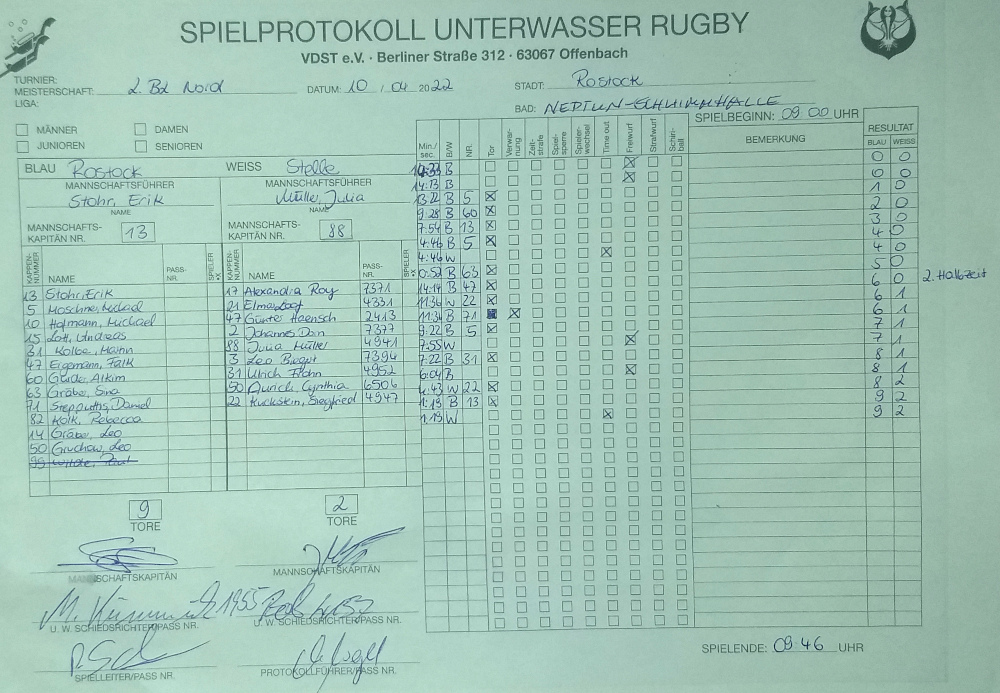 SPIELPROTOKOLL UNTERWASSER RUGBY
VDST e.V. · Berliner Straße 312 · 63067 Offenbach
TURNIER:
MEISTERSCHAFT: 2. BL Nord DATUM: 10 / 04 2022 STADT: Rostock
LIGA:
BAD: NEPTUN-SCHWIMMHALLE
SPIELBEGINN: 09 00 UHR
MÄNNER DAMEN
JUNIOREN SENIOREN
Min./sec. B/W NR. Tor Verwarnung Zeitstrafe Spielsperre Spielerwechsel Time out Freiwurf Strafwurf Schiriball BEMERKUNG RESULTAT
BLAU WEISS
BLAU Rostock WEISS Stelle
MANNSCHAFTSFÜHRER MANNSCHAFTSFÜHRER
Stohr, Erik Müller, Julia
NAME NAME
MANNSCHAFTSKAPITÄN NR. 13 MANNSCHAFTSKAPITÄN NR. 88
KAPPENNUMMER NAME PASS-NR. SPIELER KAPPENNUMMER NAME PASS-NR. SPIELER
13 Stohr, Erik 17 Alexandra Roy 7371
5 21 4331
10 Hofmann, Michael 47 Günter Haensch 2413
15 Lott, Andreas 2 Johannes Dan 7377
31 Kolbe, 88 Julia Müller 4941
47 Falk 3 Leo 7394
60 31 Ulrich 4952
63 Gräbe, Sina 50 Aurich, Cynthia 6506
71 Daniel 22 Kuckstein, Siegfried 4947
82 Kolk, Rebecca
14 Gräber, Leo
50 Gruchow, Leo
99
14:33 B 0 0
14:13 B 0 0
13:22 B 5 1 0
9:28 B 60 2 0
7:54 B 13 3 0
4:46 B 5 4 0
4:46 W 4 0
0:52 B 63 5 0
14:14 B 47 6 0 2. Halbzeit
11:36 W 22 6 1
11:34 B 71 6 1
9:22 B 5 7 1
7:55 W 7 1
7:22 B 31 8 1
6:04 B 8 1
4:43 W 22 8 2
1:19 B 13 9 2
1:19 W 9 2
9 2
TORE TORE
MANNSCHAFTSKAPITÄN MANNSCHAFTSKAPITÄN
1955
U. W. SCHIEDSRICHTER/PASS NR. U. W. SCHIEDSRICHTER/PASS NR.
SPIELLEITER/PASS NR. PROTOKOLLFÜHRER/PASS NR.
SPIELENDE: 09 46 UHR